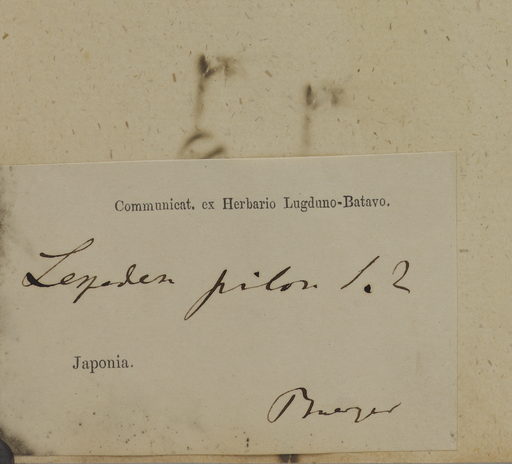 Communicat. ex Herbario Lugduno-Batavo.
Lespedez pilos S. Z
Japonia.
Buerger